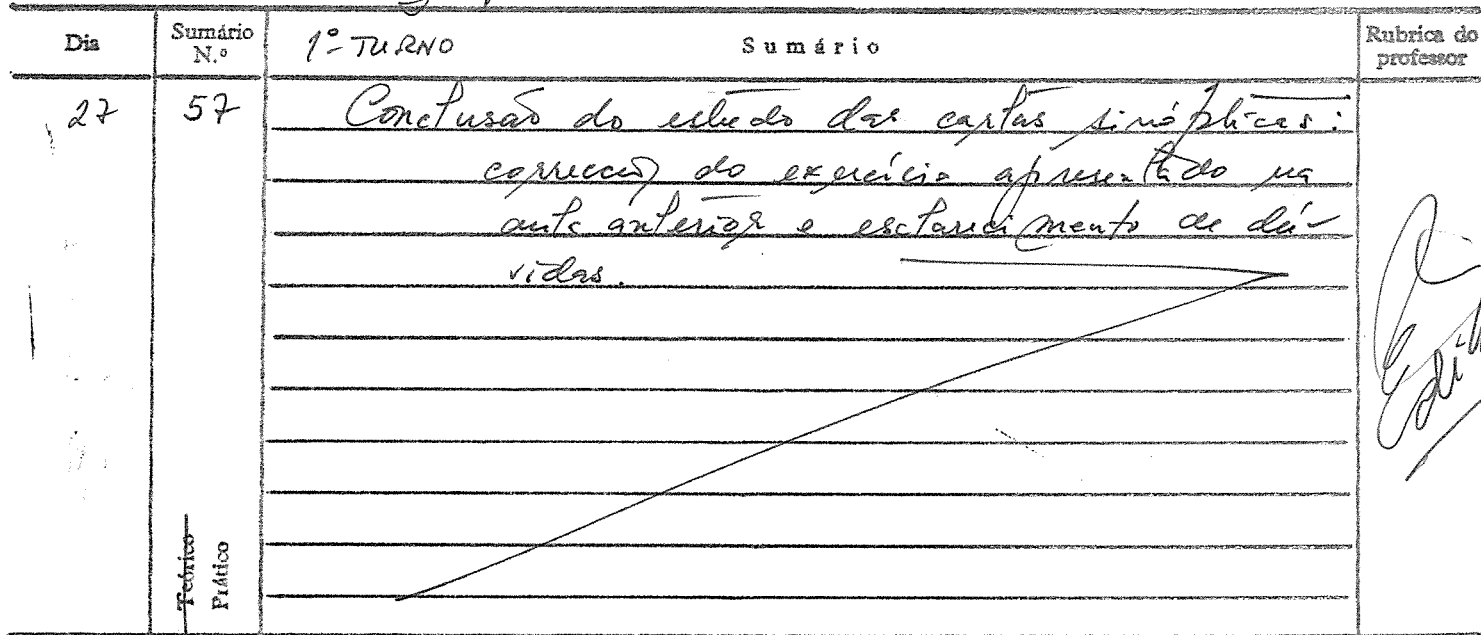 Dia
Sumário N.º
1º TURNO
Sumário
Rubrica do professor
27
57
Conclusão do estudo das cartas sinópticas:
correcção do exercício apresentado na
aula anterior e esclarecimento de dú-
vidas.
Teórico
Prático